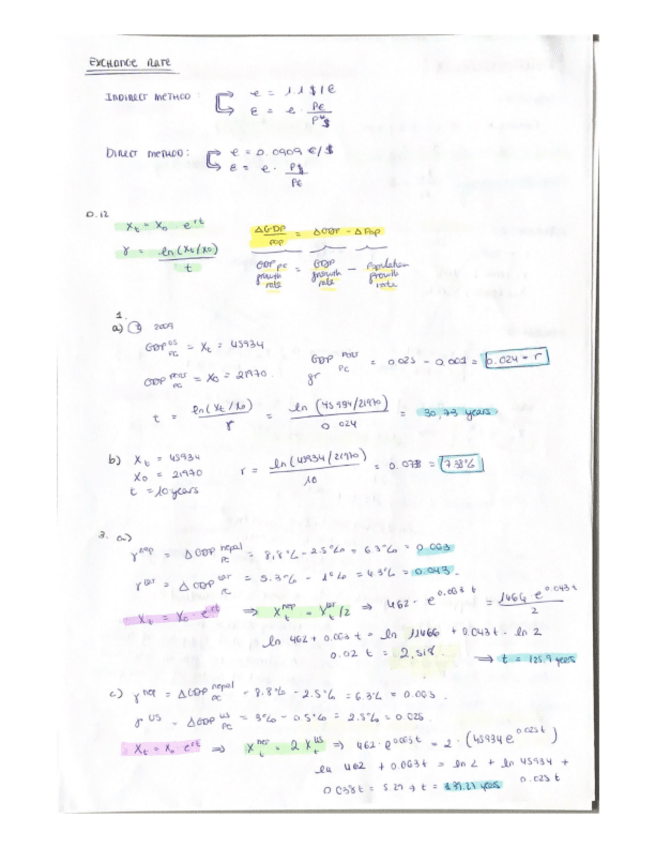 EXCHANGE RATE
INDIRECT METHOD : e = 1.1 $/€
ε = e · P€ / P$
DIRECT METHOD : e = 0.0909 €/$
ε = e · P$ / P€
D.12
Xt = X0 · e^rt
r = ln (Xt/X0) / t
ΔGDP/POP = ΔGDP - ΔPop
GDP pc growth rate = GDP growth rate - Population growth rate
1.
a) 2009
GDP US PC = Xt = 45934
GDP gr Port PC = 0.025 - 0.001 = 0.024 = r
GDP Port PC = X0 = 21970
t = ln (Xt/X0) / r = ln (45934/21970) / 0.024 = 30,73 years
b) Xt = 45934
X0 = 21970
t = 10 years
r = ln (45934/21970) / 10 = 0.073 =
3. a)
r nep = ΔGDP nepal PC = 8,8% - 2.5% = 6.3% = 0.063
= 5.3% - 1% = 4.3% = 0.043.
Xt = X0 · e^rt ⇒ = /2 ⇒ 462 · e^0.063 t = e^0.043 t / 2
ln 462 + 0.063 t = ln 11466 + 0.043 t - ln 2
0.02 t = 2,518. ⇒ t = 125.9 years
c) r nep = ΔGDP nepal PC = 8.8% - 2.5% = 6.3% = 0.063.
r US = ΔGDP US PC = 3% - 0.5% = 2.5% = 0.025.
Xt = X0 e^rt ⇒ Xt nep = 2 Xt US ⇒ 462 · e^0.063 t = 2 · (45934 e^0.025 t)
ln 462 + 0.063 t = ln 2 + ln 45934 + 0.025 t
0.038 t = 5.29 → t = years